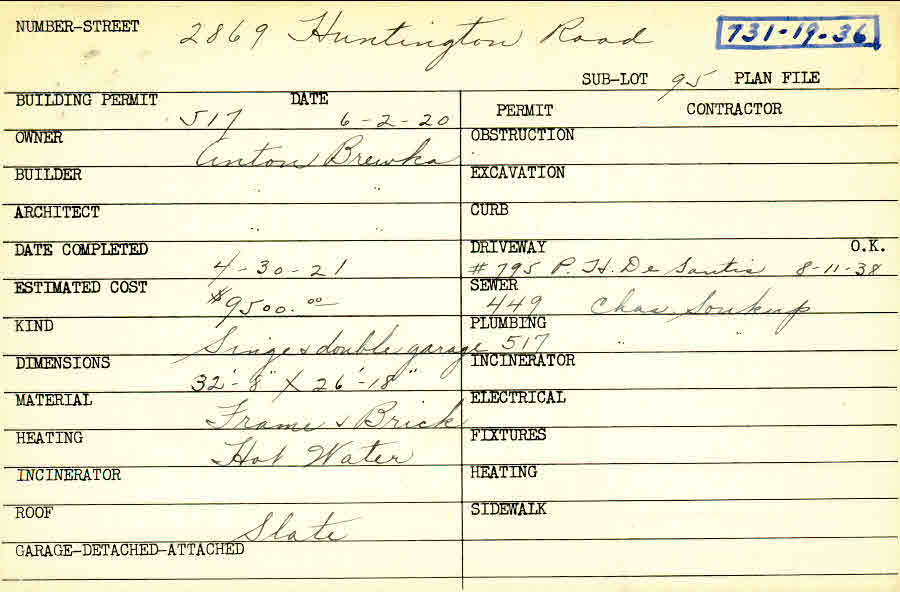 NUMBER-STREET 2869 Huntington Road 731-19-36
SUB-LOT 95 PLAN FILE
BUILDING PERMIT 517 DATE 6-2-20
OWNER Anton Brewka
BUILDER " "
ARCHITECT " "
DATE COMPLETED 4-30-21
ESTIMATED COST $9500.00
KIND Singe & double garage
DIMENSIONS 32'-8" X 26'-18"
MATERIAL Frame & Brick
HEATING Hot Water
INCINERATOR
ROOF Slate
GARAGE-DETACHED-ATTACHED
PERMIT CONTRACTOR
OBSTRUCTION
EXCAVATION
CURB
DRIVEWAY O.K.
#795 P. H. De Santis 8-11-38
SEWER 449 Chas. Soukup
PLUMBING 517 " "
INCINERATOR
ELECTRICAL
FIXTURES
HEATING
SIDEWALK